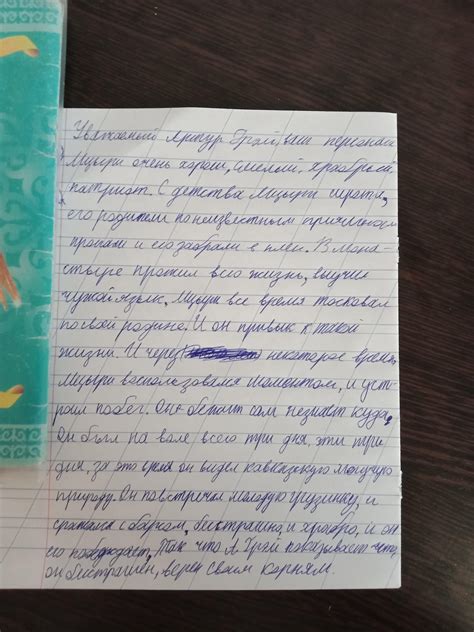 Уважаемый Артур Грэй, ваш персонаж
Мцыри очень хорош, смелый, храбрый
патриот. С детства Мцыри сирота,
его родители по неизвестным причинам
пропали и его забрали в плен. В мона-
стыре прожил всю жизнь, выучил
чужой язык. Мцыри все время тосковал
по своей родине. И он привык к такой
жизни. И через некоторое время
Мцыри воспользовался моментом, и уст-
роил побег. Он бежит сам не знает куда,
Он был на воле всего три дня, эти три
дня, за это время он видел кавказскую могучую
природу. Он повстречал молодую грузинку, и
сразился с барсом, бесстрашно и храбро, и он
его побеждает, Так что А. Грэй показывает что
он бесстрашен, верен своим корням.